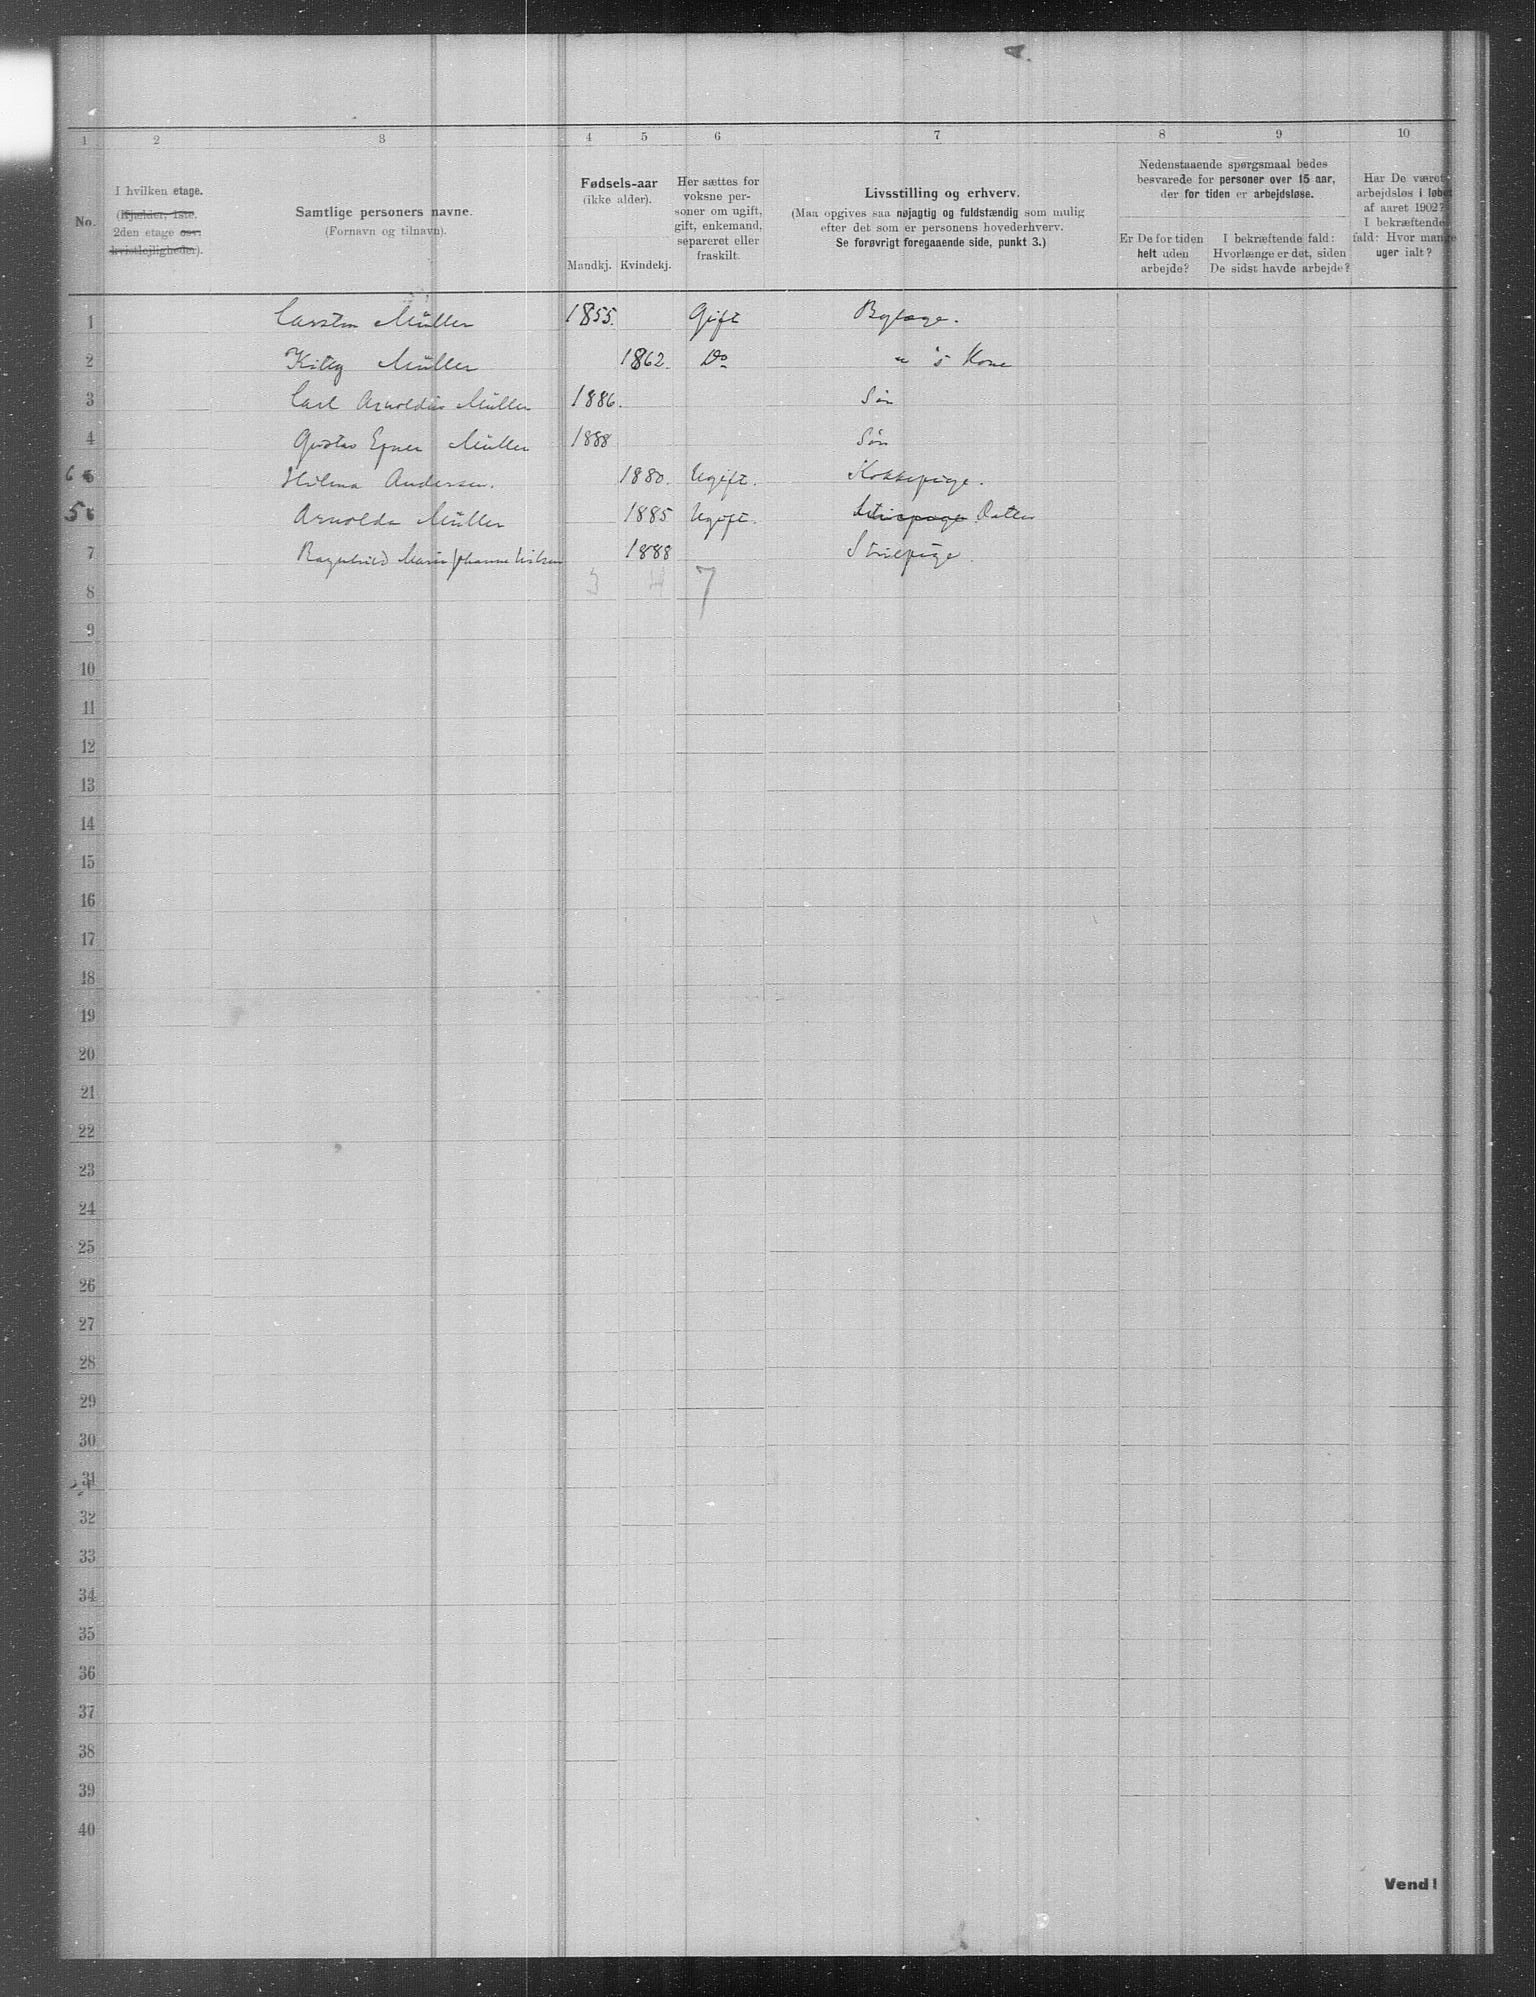 1 2 3 4 5 6 7 8 9 10
No.
I hvilken etage.
(Kjælder, 1ste.
2den etage osv.
kvistlejligheder).
Samtlige personers navne.
(Fornavn og tilnavn).
Fødsels-aar
(ikke alder).
Mandkj. Kvindekj.
Her sættes for
voksne per-
soner om ugift,
gift, enkemand,
separeret eller
fraskilt.
Livsstilling og erhverv.
(Maa opgives saa nøjagtig og fuldstændig som mulig
efter det som er personens hovederhverv.
Se forøvrigt foregaaende side, punkt 3.)
Nedenstaaende spørgsmaal bedes
besvarede for personer over 15 aar,
der for tiden er arbejdsløse.
Er De for tiden
helt uden
arbejde?
I bekræftende fald:
Hvorlænge er det, siden
De sidst havde arbejde?
Har De været
arbejdsløs i løbet
af aaret 1902?
I bekræftende
fald: Hvor mange
uger ialt?
1 Carsten Müller 1855. Gift Bylæge.
2 Kitty Müller 1862. Do " 's Kone
3 Carl Arnoldus Müller 1886. Søn
4 Gustav Müller 1888 Søn
6 Hilma Andersen. 1880. Ugift. Kokkepige.
5 Arnolda Müller 1885 Ugift. Datter
7 Ragnhild Marie Johanne 1888 Stuepige.
8 3 4 7
9
10
11
12
13
14
15
16
17
18
19
20
21
22
23
24
25
26
27
28
29
30
31
32
33
34
35
36
37
38
39
40
Vend!